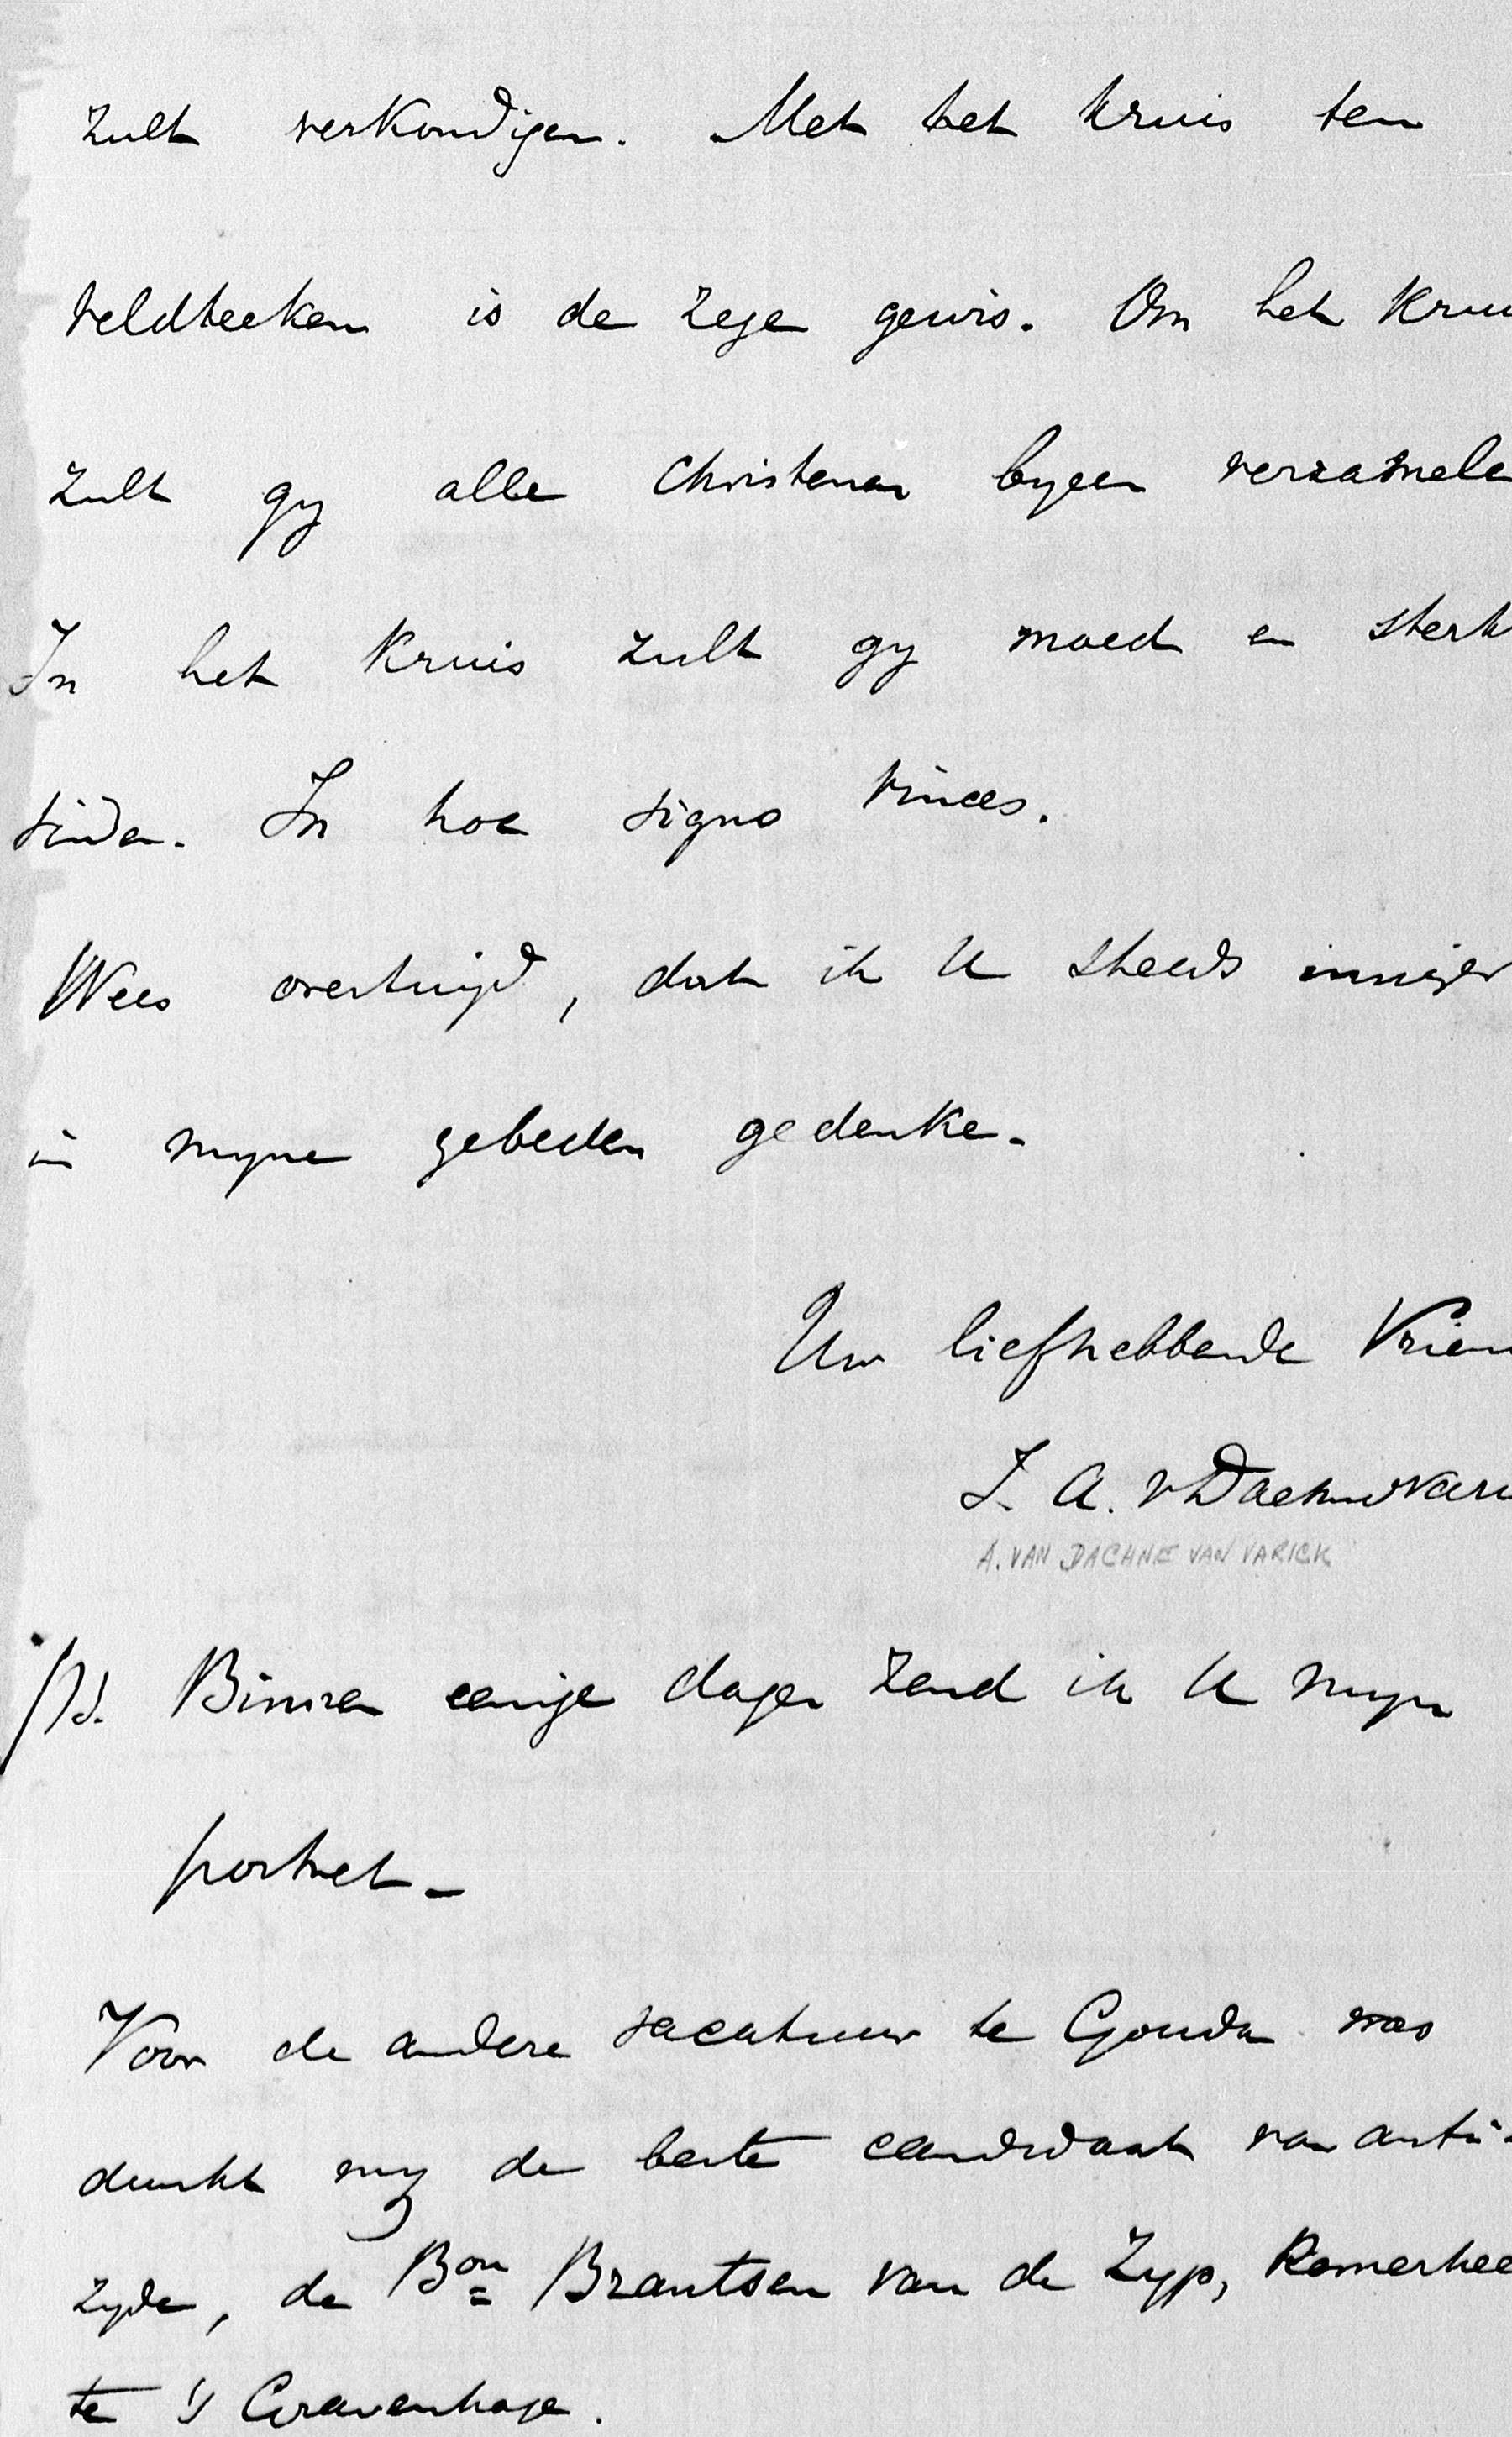 zult verkondigen. Met het kruis ten
veldteeken is de zege gewis. Om het Kruis
zult gy alle Christenen byeen verzamelen
In het Kruis zult gy moed en sterk
vinden. In hoc signo vinces.
Wees overtuigd, dat ik U steeds inniger
in myne gebeden gedenke.
Uw liefhebbende Vrien
J. A. v Daehne v Vari
A. VAN DACHNE VAN VARICK
PS. Binnen eenige dagen zend ik U myn
portret_
Voor de andere vacatuur te Gouda was
dunkt my de beste candidaat van anti-
zyde, de Bon Brantsen van de Zyp, Kamerhee
te 's Gravenhage.